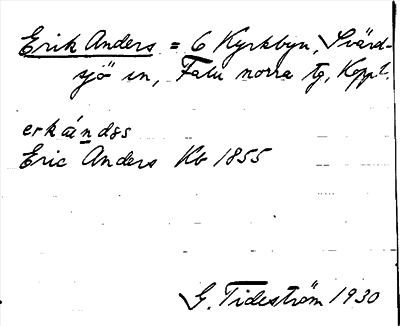 Erik Anders = 6 Kyrkbyn, Svärd-
sjö sn, Falu norra tg, Koppl.
erkándss
Eric Anders Kb 1855
G. Tideström 1930